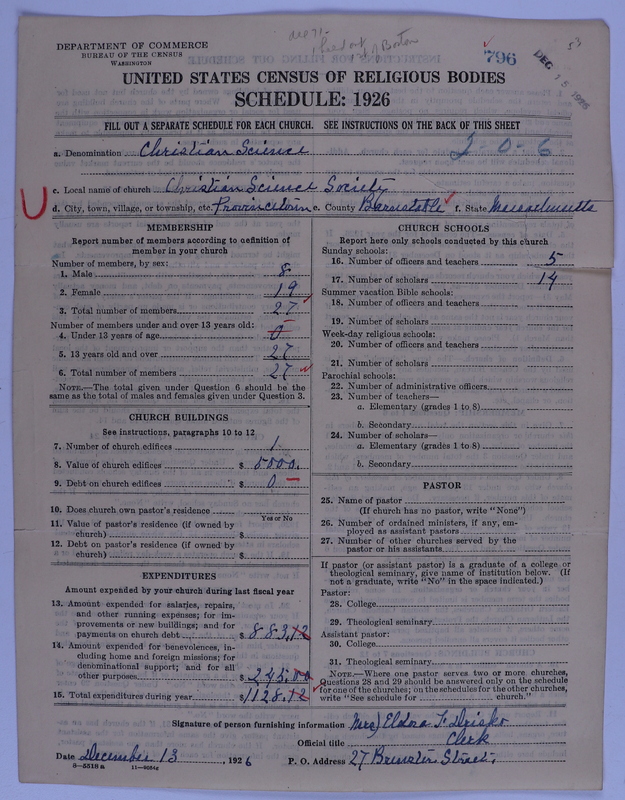 DEPARTMENT OF COMMERCE
BUREAU OF THE CENSUS
WASHINGTON
796
DEC 15 1926
53
UNITED STATES CENSUS OF RELIGIOUS BODIES
SCHEDULE: 1926
FILL OUT A SEPARATE SCHEDULE FOR EACH CHURCH. SEE INSTRUCTIONS ON THE BACK OF THIS SHEET
a. Denomination Christian Science
2-0-6
c. Local name of church Christian Science Society
U d. City, town, village, or township, etc. Provincetown e. County Barnstable f. State Massachusetts
MEMBERSHIP
Report number of members according to definition of
member in your church
Number of members, by sex:
1. Male 8
2. Female 19
3. Total number of members 27
Number of members under and over 13 years old:
4. Under 13 years of age 0
5. 13 years old and over 27
6. Total number of members 27
NOTE.—The total given under Question 6 should be the
same as the total of males and females given under Question 3.
CHURCH BUILDINGS
See instructions, paragraphs 10 to 12
7. Number of church edifices 1
8. Value of church edifices $ 5000.
9. Debt on church edifices $ 0
10. Does church own pastor's residence
Yes or No
11. Value of pastor's residence (if owned by
church) $
12. Debt on pastor's residence (if owned by
church) $
EXPENDITURES
Amount expended by your church during last fiscal year
13. Amount expended for salaries, repairs,
and other running expenses; for im-
provements or new buildings; and for
payments on church debt $ 883.12
14. Amount expended for benevolences, in-
cluding home and foreign missions; for
denominational support; and for all
other purposes $ 245.00
15. Total expenditures during year $ 1128.12
CHURCH SCHOOLS
Report here only schools conducted by this church
Sunday schools:
16. Number of officers and teachers 5
17. Number of scholars 14
Summer vacation Bible schools:
18. Number of officers and teachers
19. Number of scholars
Week-day religious schools:
20. Number of officers and teachers
21. Number of scholars
Parochial schools:
22. Number of administrative officers
23. Number of teachers—
a. Elementary (grades 1 to 8)
b. Secondary
24. Number of scholars—
a. Elementary (grades 1 to 8)
b. Secondary
PASTOR
25. Name of pastor
(If church has no pastor, write "None")
26. Number of ordained ministers, if any, em-
ployed as assistant pastors
27. Number of other churches served by the
pastor or his assistants
If pastor (or assistant pastor) is a graduate of a college or
theological seminary, give name of institution below. (If
not a graduate, write "No" in the space indicated.)
Pastor:
28. College
29. Theological seminary
Assistant pastor:
30. College
31. Theological seminary
NOTE.—Where one pastor serves two or more churches,
Questions 28 and 29 should be answered only on the schedule
for one of the churches; on the schedules for the other churches,
write "See schedule for church."
Signature of person furnishing information (Mrs) Eldora F.
Official title Clerk
Date December 13, 1926 P. O. Address 27 Brewster Street.
8—5518 a 11—9254d